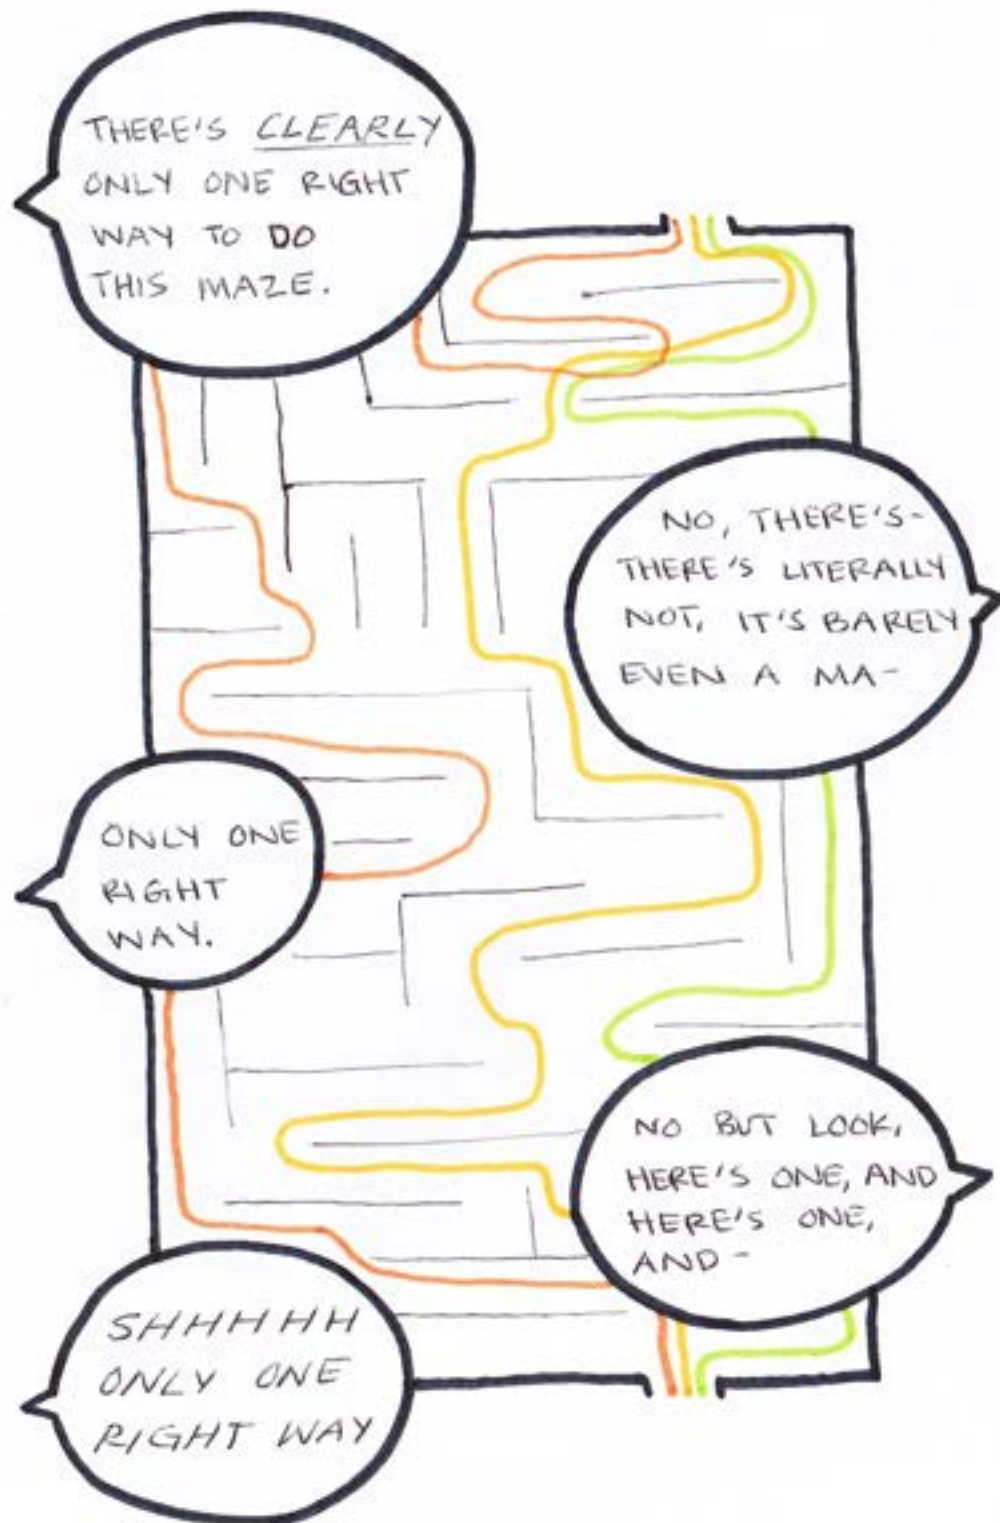 THERE'S CLEARLY
ONLY ONE RIGHT
WAY TO DO
THIS MAZE.
NO, THERE'S-
THERE'S LITERALLY
NOT, IT'S BARELY
EVEN A MA-
ONLY ONE
RIGHT
WAY.
NO BUT LOOK,
HERE'S ONE, AND
HERE'S ONE,
AND-
SHHHHH
ONLY ONE
RIGHT WAY